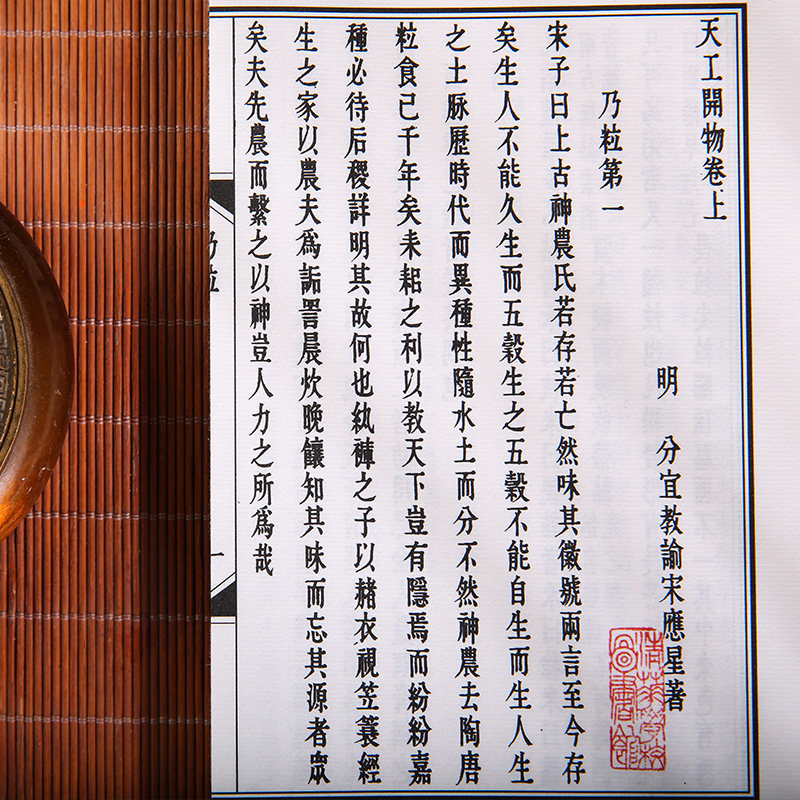 天工開物卷上
明　分宜教諭宋應星著
乃粒第一
宋子曰上古神農氏若存若亡然味其徽號兩言至今存
矣生人不能久生而五穀生之五穀不能自生而生人生
之土脉歷時代而異種性隨水土而分不然神農去陶唐
粒食已千年矣耒耜之利以教天下豈有隱焉而紛紛嘉
種必待后稷詳明其故何也紈褲之子以赭衣視笠蓑經
生之家以農夫爲詬詈晨炊晚饟知其味而忘其源者眾
矣夫先農而繫之以神豈人力之所爲哉
清華學校
圖書館
乃粒
一